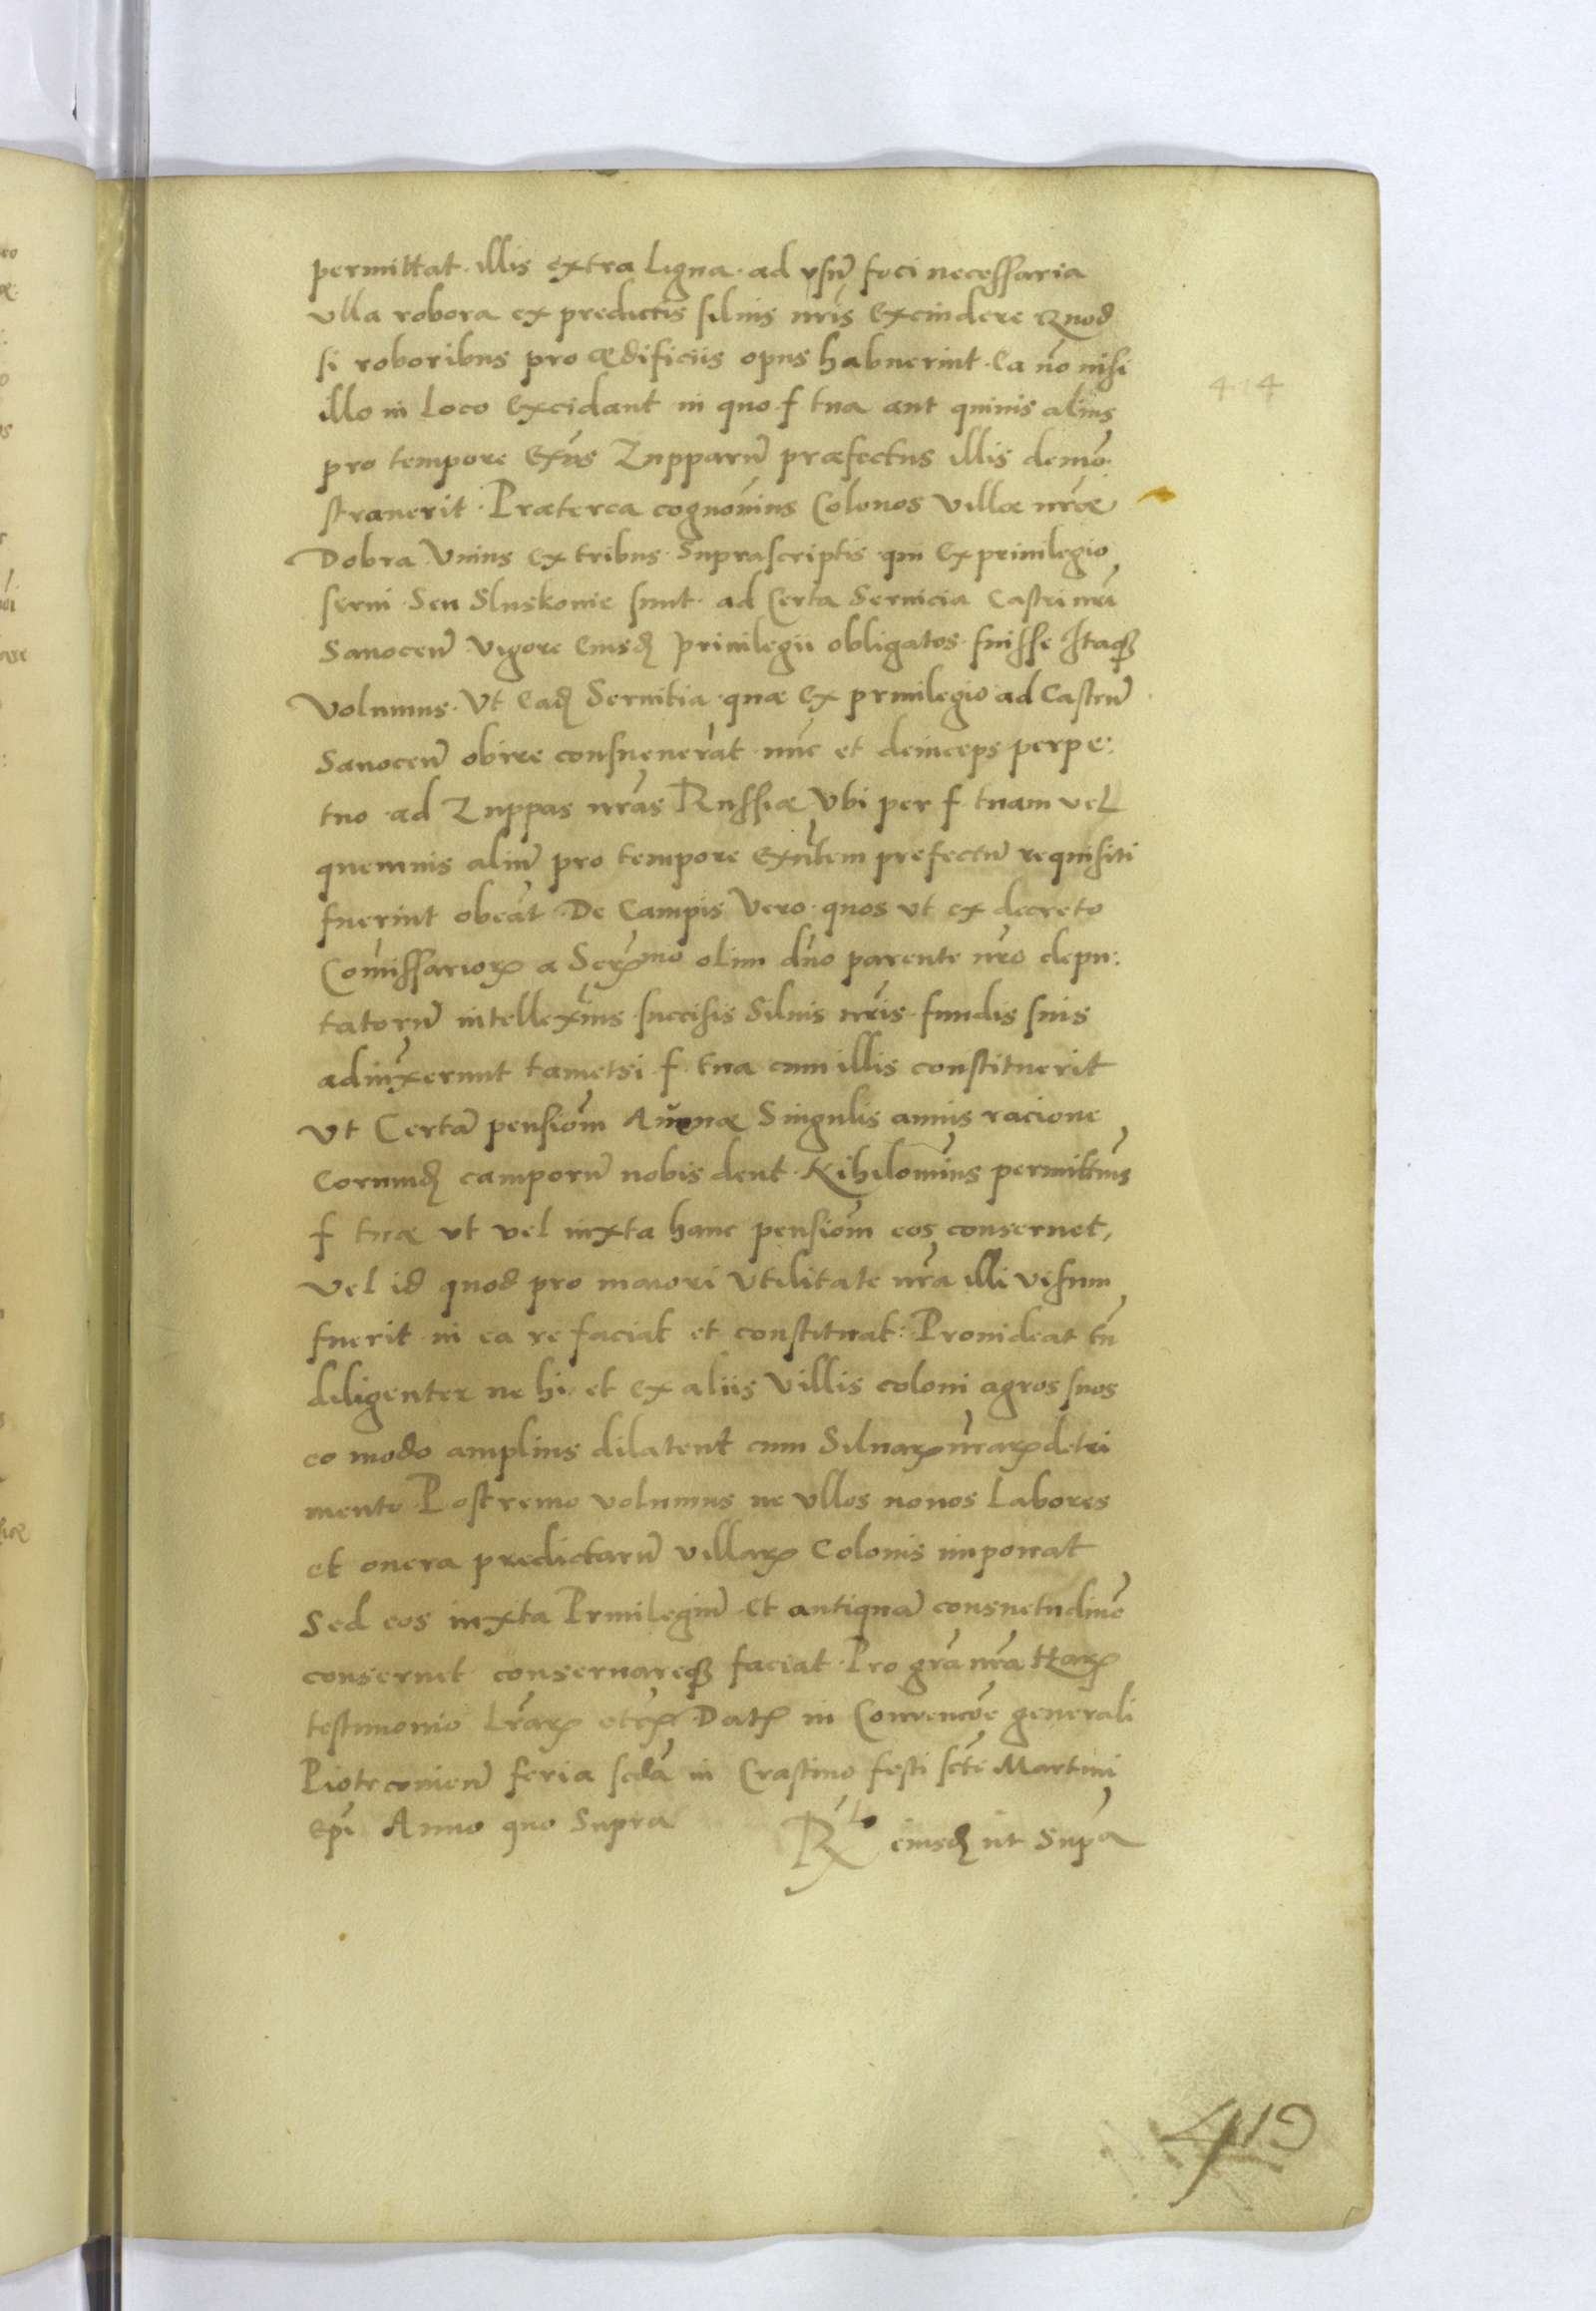 permittat · illis extra Ligna · ad vsū foci necessaria
vlla robora ex predictis siluis nr̄is Excindere Quod
si roboribus pro ædificiis opus habuerint · Ea nō nisi
414
illo in Loco Excidant in quo f tua aut quiuis alius
pro tempore Exn̄s Zupparū præfectus illis demō
strauerit · Præterea cognouim̄us Colonos Villæ nr̄æ
Dobra Vnius ex tribus Suprascriptis qui Ex priuilegio
serui Seu Sluskonie sunt · ad Certa Seruicia Castri nr̄i
Sanoceñ Vigore Eiusd̄ priuilegii obligatos fuisse Itaq3
Volumus · Vt Ead̄ Seruitia quæ Ex priuilegio ad Castrū
Sanoceñ obire consueuerāt nūc et deinceps perpe:
tuo ad Zuppas nr̄as Russiæ Vbi per f tuam vel
quemuis aliū pro tempore Exn̄tem prefectū requisiti
fuerint obeāt De Campis Vero quos ut ex decreto
Com̄issarioꝝ a Serꝫmo olim dn̄o parente nr̄o depu:
tatorū intelleximūs succisis Siluis nr̄is fundis suis
adiūxerunt tametsi f tua cum illis constituerit
Vt Certā pensiōm Añonæ Singulis annis racione
Eorumd̄ camporū nobis dent · Nihilomin̄us permittim̄us
f tuæ ut vel iuxta hanc pensiōm eos conseruet,
Vel id quod pro maiori Vtilitate nr̄a illi visum
fuerit in ea re faciat et constituat: Prouideat tn̄
diligenter ne hi et ex aliis Villis coloni agros suos
eo modo amplius dilatent cum Siluaꝝ nr̄aꝝ detri
mento Postremo volumus ne vllos nouos Labores
et onera predictarū villaꝝ Colonis imponat
Sed eos iuxta Priuilegiū Et antiquā consuetudinē
conseruet conseruareq3 faciat · Pro gr̄a nr̄a Haꝝ
testimonio Lr̄aꝝ etcꝝ Datꝫ in Conuenc̄oe generali
Piotrcouieñ feria scd̄a in Crastino festi sct̄i Martini
Ep̄i Anno quo Supra
Rl̄o eiusd̄ ut Sup̄a
419